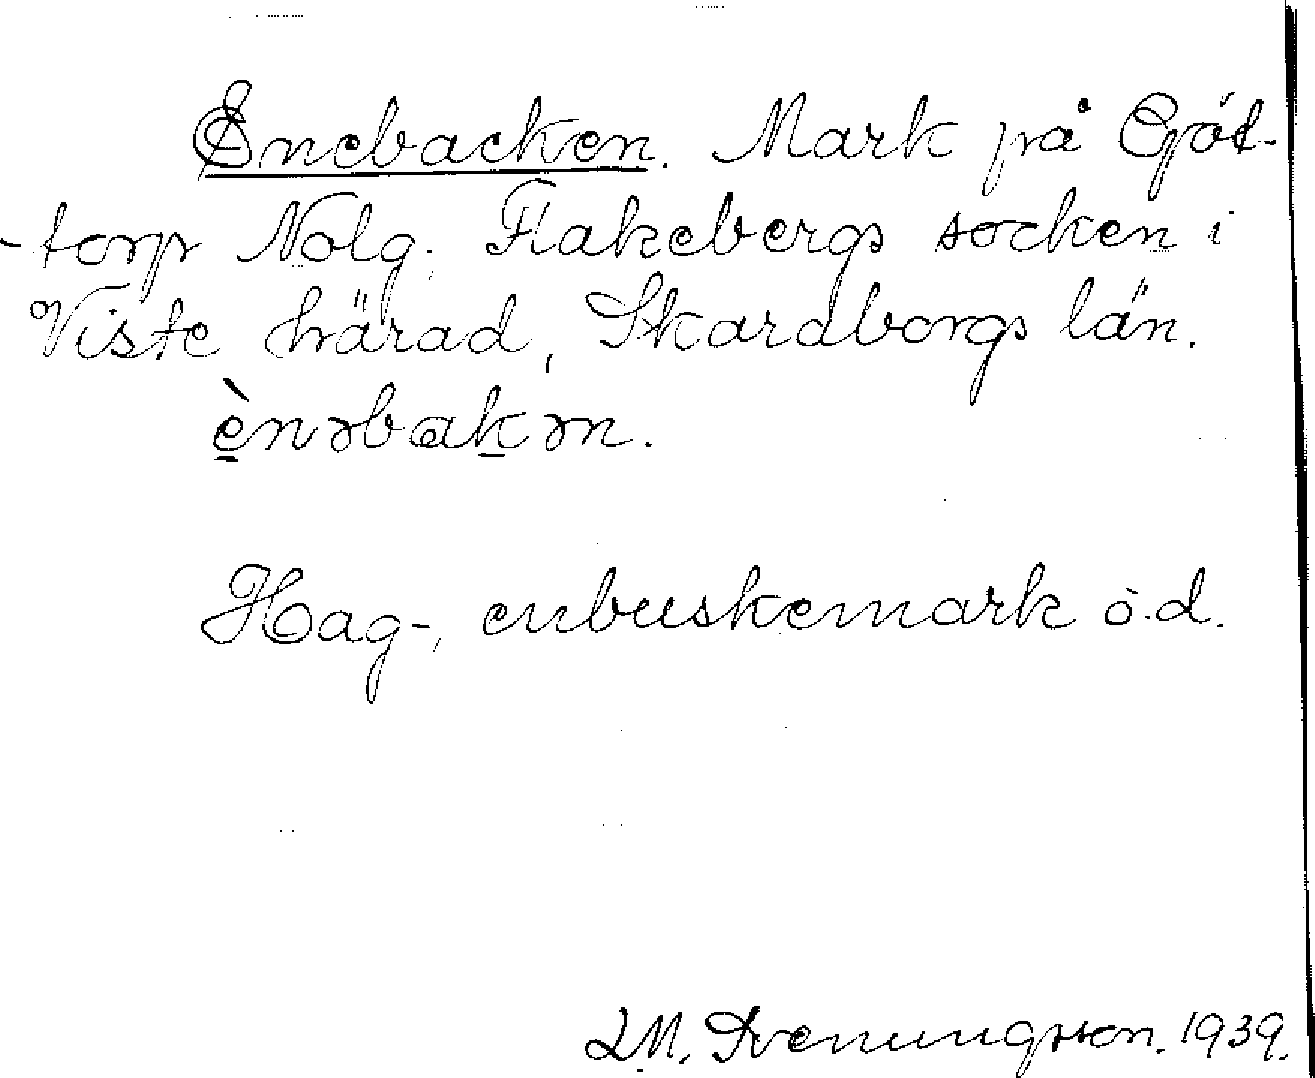 Enebacken. Mark på Göt-
-torp Nolg. Flakebergs socken i
Viste härad, Skaraborgs län.
ènəbakən.
Hag-, enbuskemark ö.d.
I.M. Svenungsson. 1939.